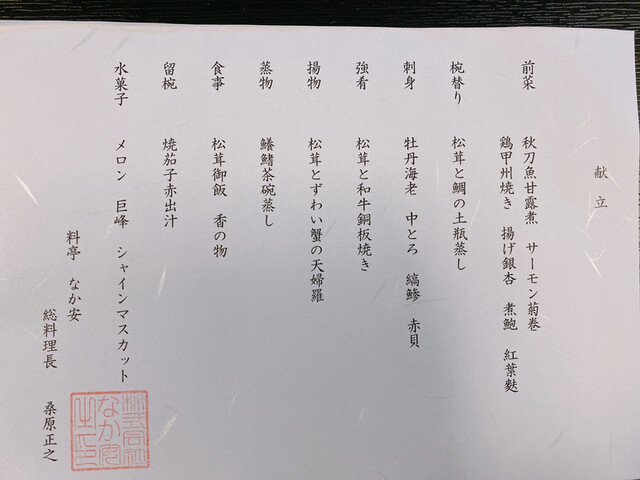 献立
前菜　秋刀魚甘露煮　サーモン菊巻
鶏甲州焼き　揚げ銀杏　煮鮑　紅葉麩
椀替り　松茸と鯛の土瓶蒸し
刺身　牡丹海老　中とろ　縞鯵　赤貝
強肴　松茸と和牛銅板焼き
揚物　松茸とずわい蟹の天婦羅
蒸物　鱶鰭茶碗蒸し
食事　松茸御飯　香の物
留椀　焼茄子赤出汁
水菓子　メロン　巨峰　シャインマスカット
料亭　なか安
総料理長　桑原正之
株式会社
なか安
之印